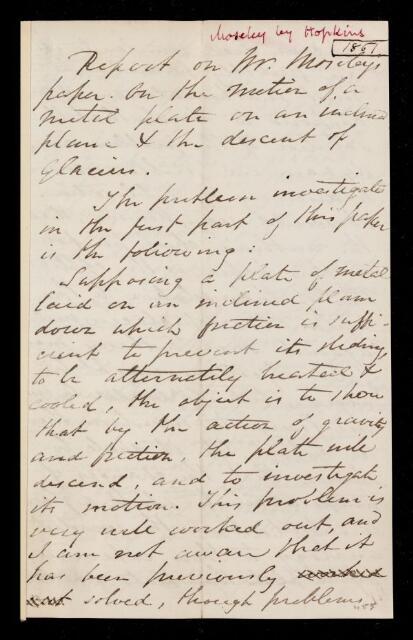 Moseley by Hopkins
1851
Report on Mr. Moseley's
paper. On the motion of a
metal plate on an inclined
plane & the descent of
Glaciers.
The problem investigated
in the first part of this paper
is the following:
Supposing a plate of metal
laid on an inclined plane
down which friction is suffi-
cient to prevent its sliding
to be alternately heated &
cooled, the object is to show
that by the action of gravity
and friction, the plate will
descend, and to investigate
its motion. This problem is
very well worked out, and
I am not aware that it
has been previously
solved, though problems